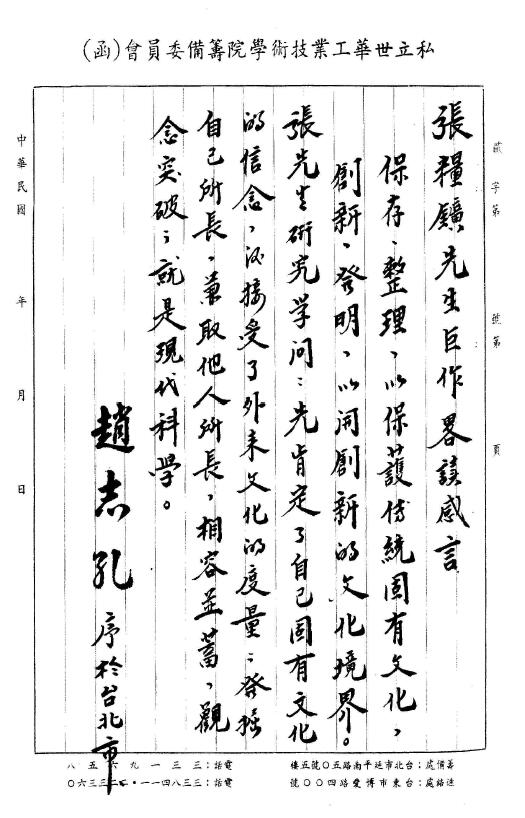 私立世華工業技術學院籌備委員會(函)
字第 號第 頁
張糧鑛先生巨作畧讀感言
保存、整理、以保護傳統固有文化,
創新、發明、以開創新的文化境界。
張先生研究学问:先肯定了自己固有文化
的信念,沒接受了外来文化的度量;發掘
自己所長,兼取他人所長,相容並蓄,觀
念突破;就是現代科學。
趙志孔 序於台北市
中華民國 年 月 日
籌備處:台北市延平南路五〇號五樓 電話:三三一九六五八
連絡處:台東市博愛路四〇〇號